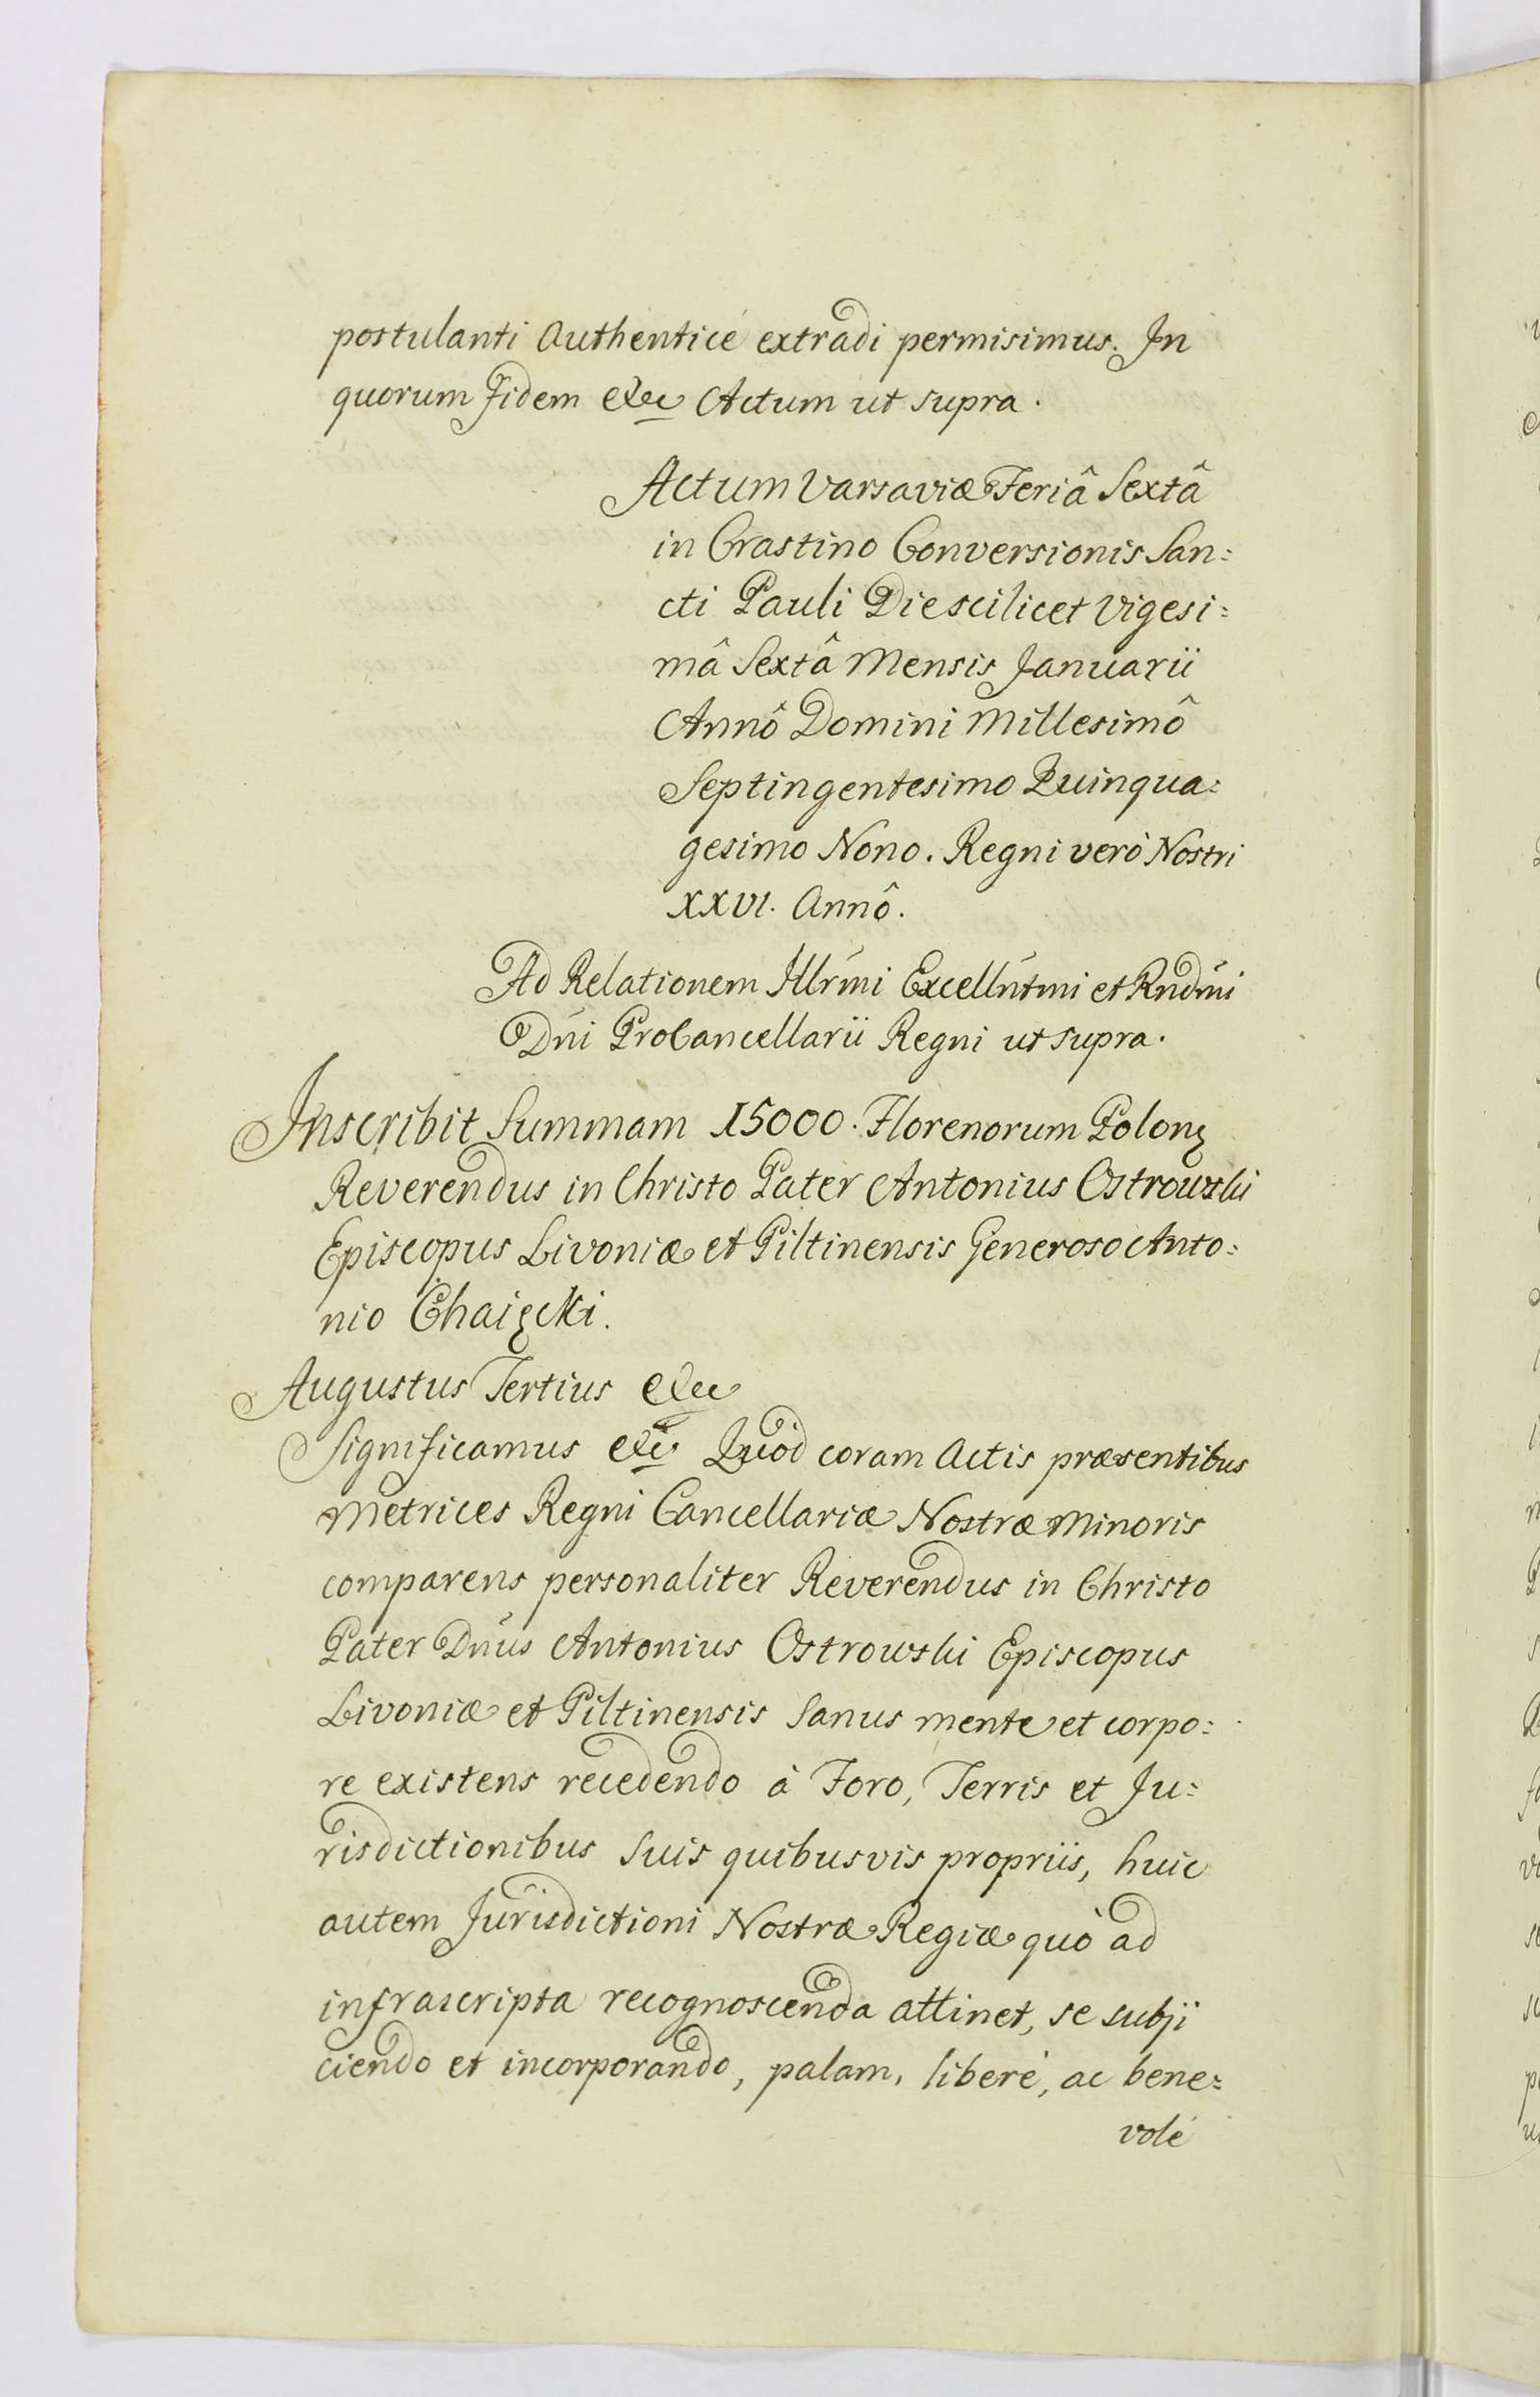 postulanti Authenticé extradi permisimus. In
quorum Fidem etc Actum ut supra.
Actum Varsaviæ Feriâ Sextâ
in Crastino Conversionis San:
cti Pauli Die scilicet Vigesi:
mâ Sextâ Mensis Januarii
Annô Domini Millesimô
Septingentesimo Quinqua:
gesimo Nono. Regni verò Nostri
XXVI. Annô.
Ad Relationem Illrmi Excellntmi et Rndmi
Dni ProCancellarii Regni ut supra.
Inscribit Summam 15000. Florenorum Polon
Reverendus in Christo Pater Antonius Ostrowski
Episcopus Livoniæ et Piltinensis Generoso Anto:
nio
Augustus Tertius etc
Significamus etc Quòd coram Actis præsentibus
Metrices Regni Cancellariæ Nostræ Minoris
comparens personaliter Reverendus in Christo
Pater Dnus Antonius Ostrowski Episcopus
Livoniæ et Piltinensis Sanus mente et corpo:
re existens recedendo à Foro, Terris et Ju:
risdictionibus suis quibusvis propriis, huic
autem Jurisdictioni Nostræ Regiæ quò ad
infrascripta recognoscenda attinet, se subji
ciendo et incorporando, palam, liberé, ac bene:
volé